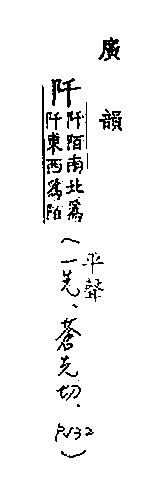 廣韻
阡
阡陌南北爲
阡東西爲陌
平聲
(一先、蒼先切. P132)